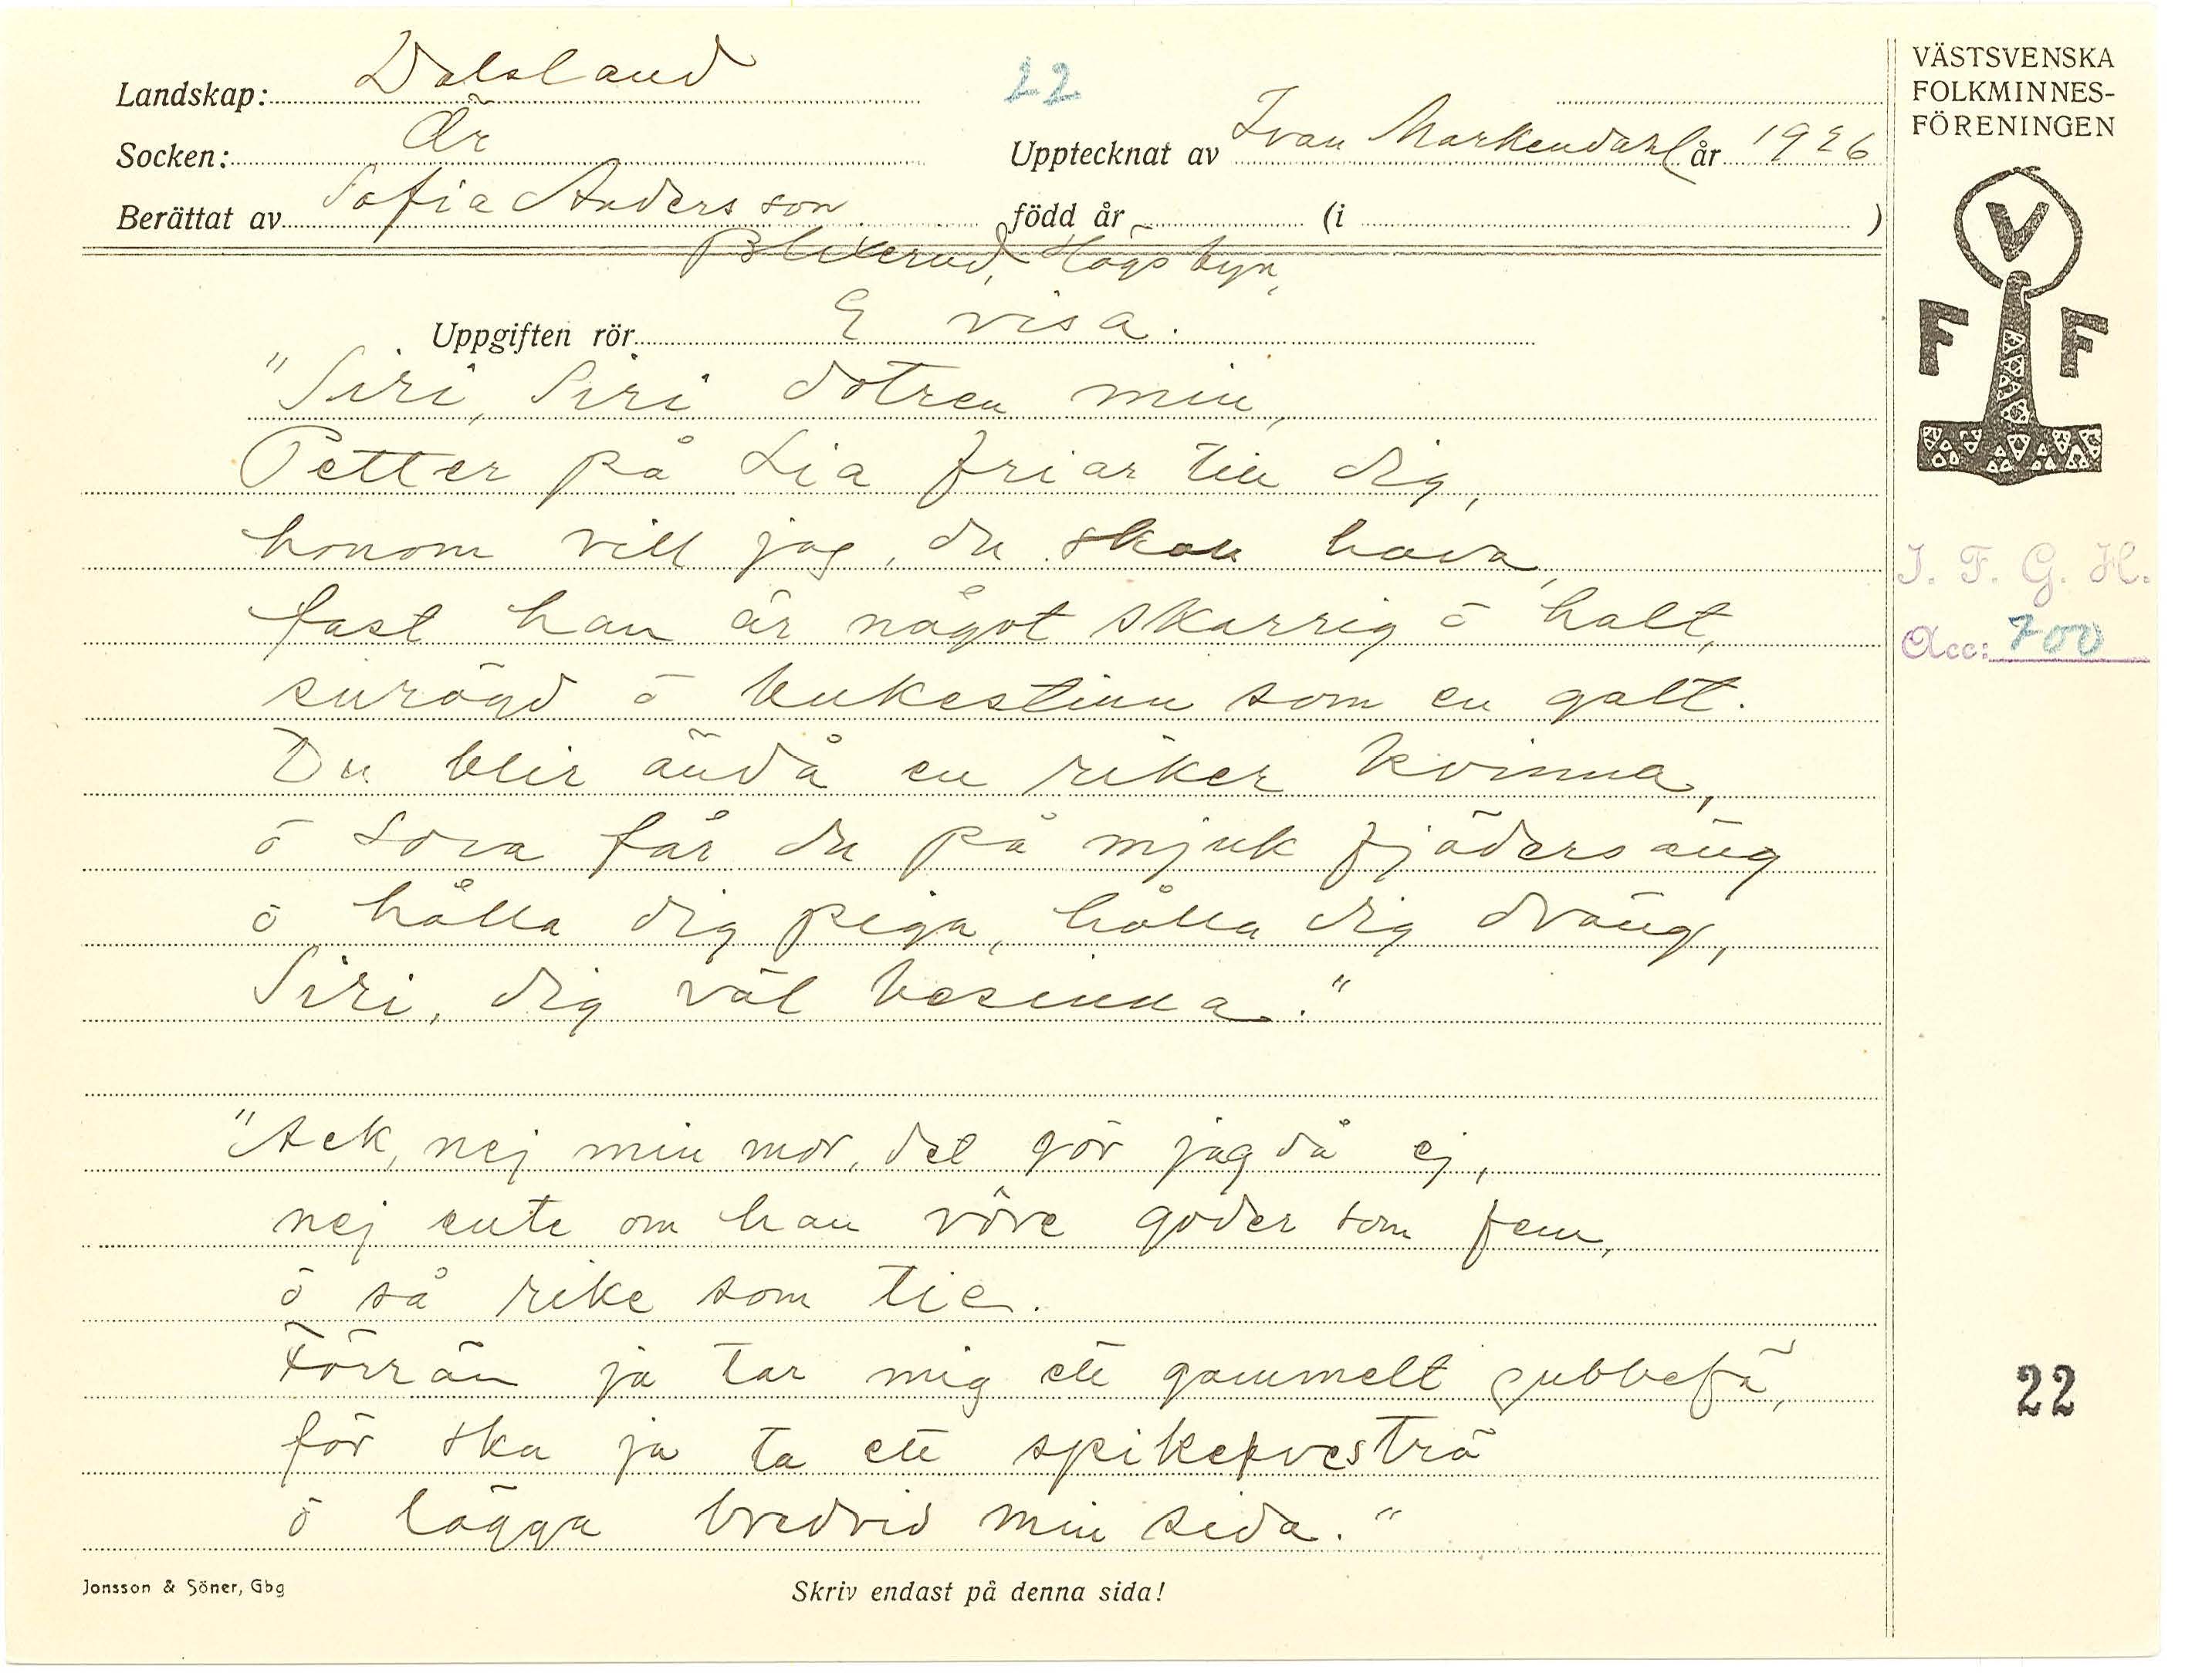 Landskap: Dalsland
22
Socken: Är
Upptecknat av Ivan Markendahl år 1926
Berättat av Sofia Andersson
född år (i )
Blixerud, Högsbyn,
Uppgiften rör E visa.
"Siri, Siri dotren min,
Petter på Lia friar till dig,
honom vill jag, du skall hava,
fast han är något skarrig ö halt,
surögd ö bukestinn som en galt.
Du blir ändå en riker kvinna,
ö sova får du på mjuk fjädersäng
ö hålla dig piga, hålla dig dräng,
Siri, dig väl besinna."
"Ack, nej min mor, det gör jag då ej,
nej ente om han vöre goder som fem,
ö så rike som tie.
Förrän ja tar mig ett gammelt gubbefä,
för ska ja ta ett spikekvesträ
ö lägga bredvid min sida."
Jonsson & Söner, Gbg
Skriv endast på denna sida!
VÄSTSVENSKA
FOLKMINNES-
FÖRENINGEN
V
F F
I. F. G. H.
Acc: 700
22